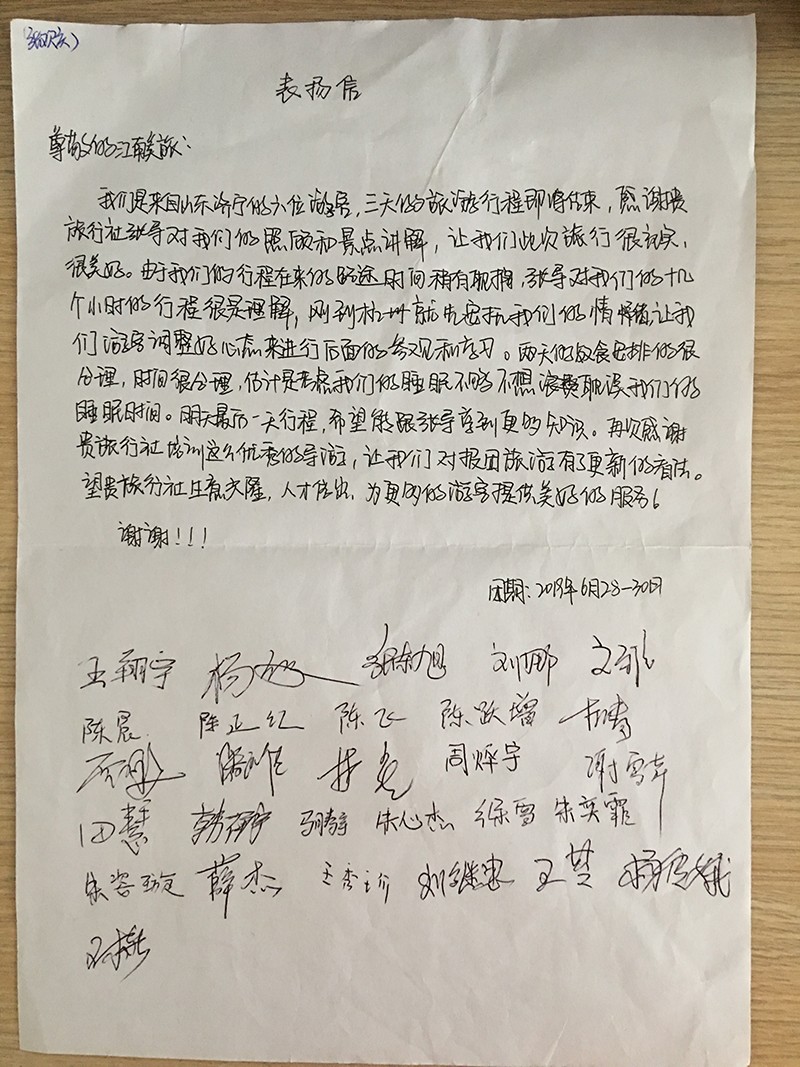 表扬信
尊敬的江南旅：
我们是来自山东济宁的六位游客，三天的旅游行程即将结束，感谢贵
旅行社张导对我们的照顾和景点讲解，让我们此次旅行很充实，
很美好。由于我们的行程在来的路途时间稍有耽搁，张导对我们的十几
个小时的行程很是理解，刚到杭州就先安抚我们的情绪，让我
们游客调整好心态来进行后面的参观和学习。两天的饮食安排的很
合理，时间很合理，估计是考虑我们的睡眠不够不想浪费耽误我们的
睡眠时间。明天最后一天行程，希望能跟张导学到更多知识。再次感谢
贵旅行社培训这么优秀的导游，让我们对报团旅游有了更新的看法。
望贵旅行社生意兴隆，人才倍出，为更多的游客提供美好的服务！
谢谢！！！
团期：2019年6月28-30日
王翔宇 杨 张东旭 刘娜
陈晨 陈正红 陈飞 陈跃增
周烨宇 谢雪
田慧 朱心杰 徐雪 朱奕霏
朱 薛杰 王秀 刘继忠 王芸
王